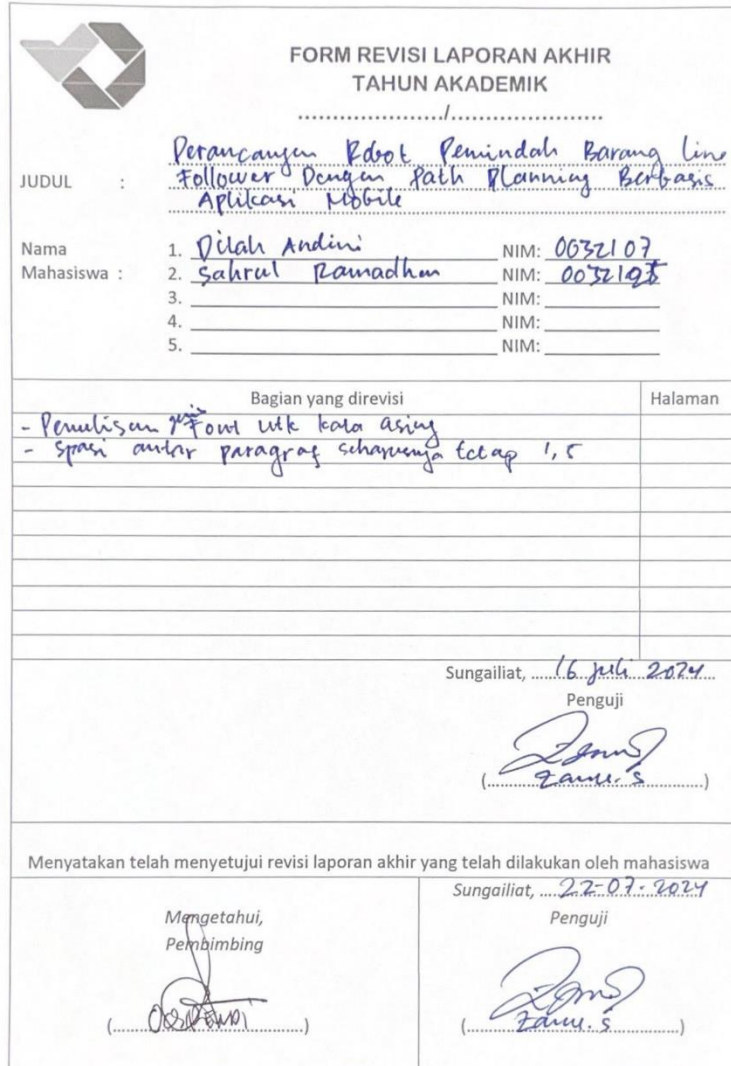 FORM REVISI LAPORAN AKHIR
TAHUN AKADEMIK
...................../......................
JUDUL : Perancangan Robot Pemindah Barang Line
Follower Dengan Path Planning Berbasis
Aplikasi Mobile
Nama Mahasiswa :
1. Dilah Andini NIM: 0032107
2. Sahrul Ramadhan NIM:
3. NIM:
4. NIM:
5. NIM:
Bagian yang direvisi Halaman
- Penulisan jenis Font utk kata asing
- Spasi antar paragraf seharusnya tetap 1,5
Sungailiat, 16 Juli 2024
Penguji
(.....................)
Menyatakan telah menyetujui revisi laporan akhir yang telah dilakukan oleh mahasiswa
Mengetahui,
Pembimbing
(.....................)
Sungailiat, 22-07-2024
Penguji
(.....................)